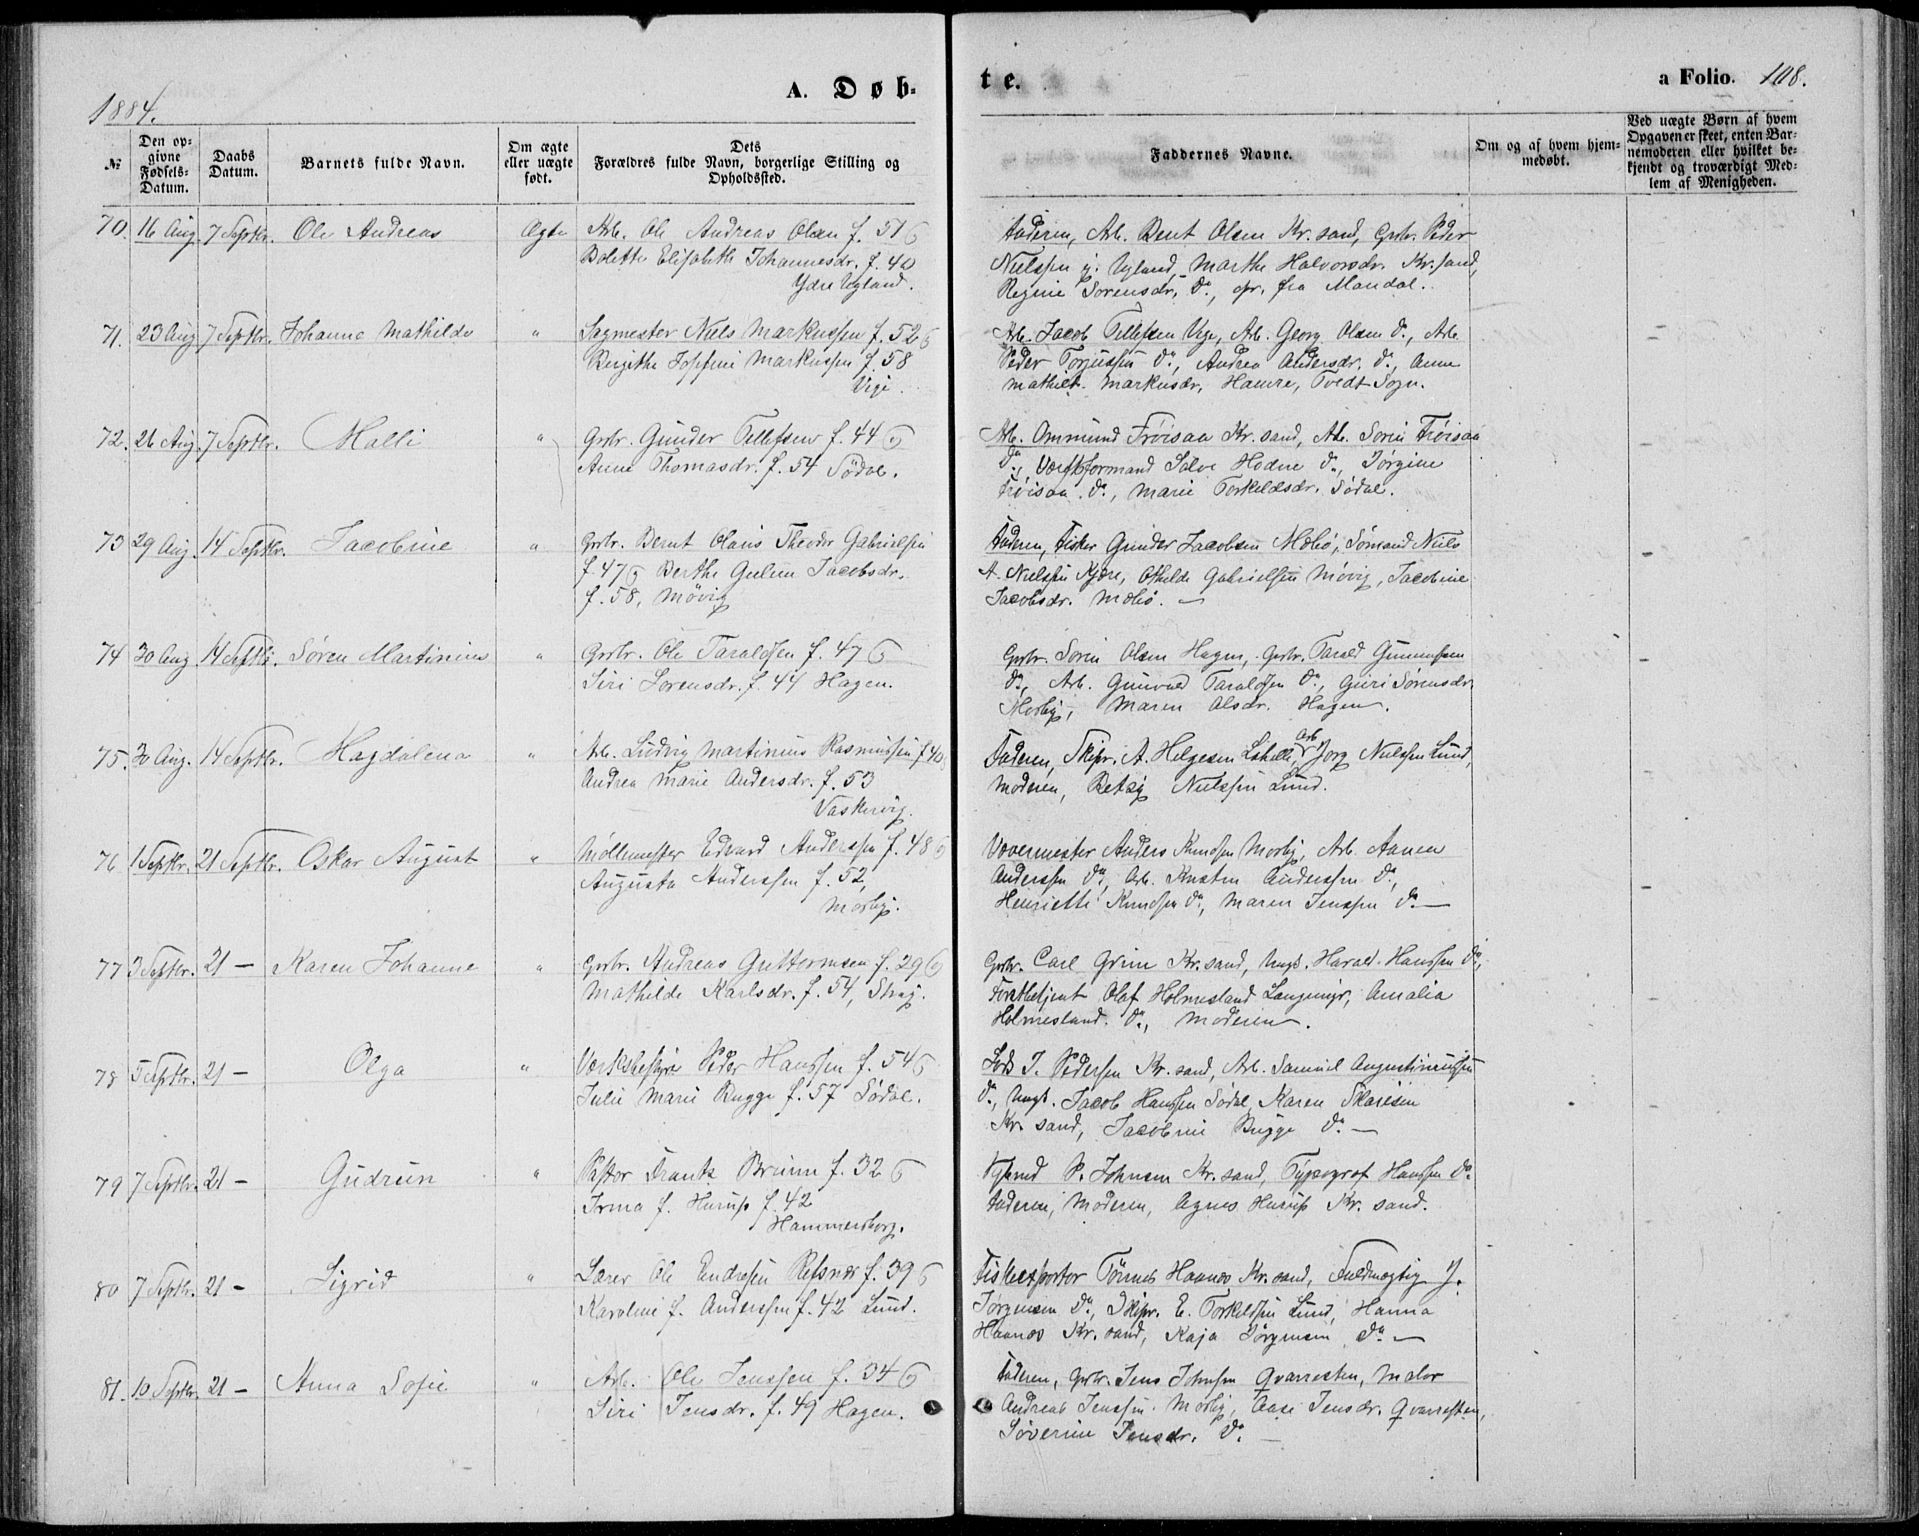 1884.
A. Døb-
te.
a Folio. 108.
№
Den op-
givne
Fødsels-
Datum.
Daabs
Datum.
Barnets fulde Navn.
Om ægte
eller uægte
født.
Dets
Forældres fulde Navn, borgerlige Stilling og
Opholdssted.
Faddernes Navne.
Om og af hvem hjem-
medøbt.
Ved uægte Børn af hvem
Opgaven er skeet, enten Bar-
nemoderen eller hvilket be-
kjendt og troværdigt Med-
lem af Menigheden.
70. 16 Aug. 7 Septbr. Ole Andreas Ægte Arb. Ole Andreas Olsen f. 51
Bolette Elisabeth Johannesdr. f. 40
Ydre Vgland.
Faderen, Arb. Bent Olsen Kr.sand, Grbr. Peder
Nielsen y. Vgland, Marthe Halvorsdr. Kr.sand,
Regine Sørensdr. Do., opr. fra Mandal.
71. 23 Aug 7 Septbr. Johanne Mathilde " Sagmester Niels Markussen f. 52
Birgithe Josefine Markussen f. 58
Vige.
Arb. Jacob Tellefsen Vige, Arb. Georg Olsen Do., Arb.
Peder Torjussen Do., Andrea Andersdr. Do., Anne
Mathild. Markusdr. Hamre, Tvedt Sogn.
72. 26 Aug. 7 Septbr. Malli " Grbr. Gunder Tellefsen f. 44
Anne Thomasdr. f. 54 Sødal.
Arb. Ommund Frøisaa Kr.sand, Arb. Søren Frøisaa
Do., Værftsformand Salve Hodne Do., Jørgine
Frøisaa Do., Marie Torkildsdr. Sødal.
73 29 Aug. 14 Septbr. Jacobine " Grbr. Bernt Olaus Theodor Gabrielsen
f. 47, Berthe Guline Jacobsdr.
f. 58, Møvig
Faderen, Fisker Gunder Jacobsen Mæbø, Sømand Niels
A. Nielsen Kjære, Othilde Gabrielsen Møvig, Jacobine
Jacobsdr. Mæbø. —
74 30 Aug 14 Septbr. Søren Martinius " Grbr. Ole Taraldsen f. 47
Siri Sørensdr. f. 44 Hagen.
Grbr. Søren Olsen Hagen, Grbr. Tarald Gunnufsen
Do., Arb. Gunvald Taraldsen Do., Guri Sørensdr.
Mosby, Maren Olsdr. Hagen.
75. 30 Aug. 14 Septbr. Magdalena " Arb. Ludvig Martinius Rasmussen f. 40
Andrea Marie Andersdr. f. 53
Vaskevig.
Faderen, Skipr. A. Helgesen Lahelle, Arb Jørg. Nielsen Lund,
Moderen, Betsy Nielsen Lund.
76 1 Septbr. 21 Septbr. Oskar August " Møllemester Edvard Anderssen f. 48
Augusta Anderssen f. 52,
Mosby.
Vævermester Anders Knudsen Mosby, Arb. Aanen
Anderssen Do., Arb. Kristen Anderssen Do.,
Henriette Knudsen Do., Maren Jenssen Do. —
77 3 Septbr. 21 — Karen Johanne " Grbr. Andreas Guttormsen f. 29
Mathilde Karlsdr. f. 54, Stray.
Grbr. Carl Grim Kr.sand, Ungk. Harald Hanssen Do.,
Forstbetjent Olaf Holmesland Langemyr, Amalia
Holmesland Do., Moderen.
78 5 Septbr. 21 — Olga " Værksbestyr. Peder Hanssen f. 54
Julie Marie Bugge f. 57 Sødal.
Lods J. Pedersen Kr.sand, Arb. Samuel Augustinussen
Do., Ungk. Jacob Hanssen Sødal, Karen
Kr.sand, Jacobine Bugge Do. —
79 7 Septbr. 21 — Gudrun " Pastor Frantz Bruun f. 32
Irma f. Hurup f. 42
Hammersborg.
P. Johnsen Kr.sand, Typograf Hanssen Do.
Faderen, Moderen, Agnes Hurup Kr.sand.
80 7 Septbr. 21 — Sigrid " Lærer Ole Endresen Refsnes f. 39
Karoline f. Anderssen f. 42 Lund.
Fiskexportør Tønnes Haanes Kr.sand, Fuldmægtig J.
Jørgensen Do., Skipr. E. Torkildsen Lund, Hanna
Haanes Kr.sand, Kaja Jørgensen Do. —
81. 10 Septbr. 21 — Anna Sofie " Arb. Ole Jenssen f. 34
Siri Jensdr. f. 49 Hagen.
Faderen, Grbr. Jens Johnsen Qvarresten, Maler
Andreas Jenssen Mosby, Aase Jensdr. Qvarresten,
Søverine Jensdr. Do. —